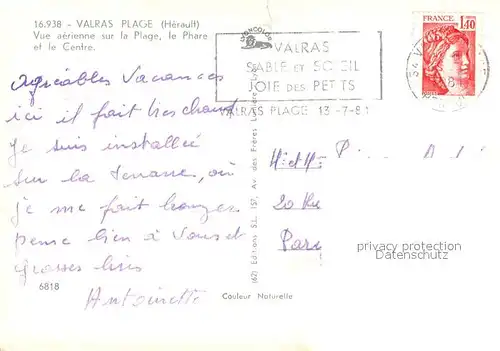 16.938 - VALRAS PLAGE (Hérault)
Vue aérienne sur la Plage, le Phare
et le Centre.
VALRAS
SABLE ET SOLEIL
JOIE DES PETITS
VALRAS PLAGE 13-7-81
FRANCE
1,40
agréables Vacances
ici il fait très chaud
Je suis installée
sur la terrasse, où
je me fait bronzer
pense bien à Vous et
grosses bises
Antoinette
6818
(62) Editions S.L. 157, Av. des Frères Lumière, Lyon
Couleur Naturelle
P A
20 Rue
Pari
privacy protection
Datenschutz